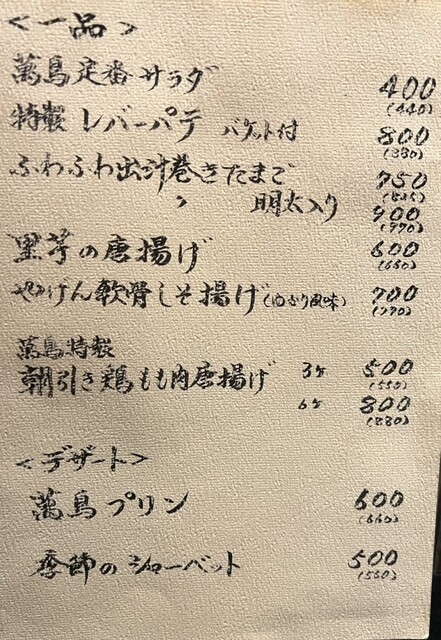 <一品>
萬鳥定番サラダ 400
(440)
特製レバーパテ バケット付 800
(880)
ふわふわ出汁巻きたまご 750
(825)
〃 明太入り 900
(990)
里芋の唐揚げ 600
(660)
やげん軟骨しそ揚げ(ゆかり風味) 700
(770)
萬鳥特製
朝引き鶏もも肉唐揚げ 3ヶ 500
(550)
6ヶ 800
(880)
<デザート>
萬鳥プリン 600
(660)
季節のシャーベット 500
(550)